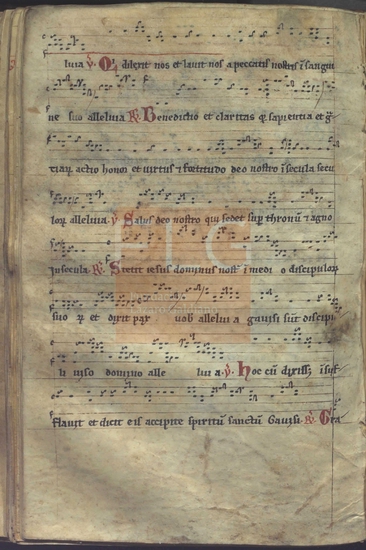 luia V. Qui dilexit nos et lavit nos a peccatis nostris i sangui
ne suo alleluia R. Benedictio et claritas q sapientia et gr
tiarꝝ actio honor et virtus ⁊ fortitudo deo nostro i secula secu
lorꝝ alleluia. V. Salus deo nostro qui sedet sup thronū ⁊ agno
in secula. R. Stetit iesus dominus nost̃ i medi o discipulorꝝ
suo rꝝ et dixit pax vob alleluia a gavisi sūt discipu
li viso domino alle luia. V. Hoc cū dixiss; i suf
flavit et dicit eis accipite spiritū sanctū Gavisi. R. Gra